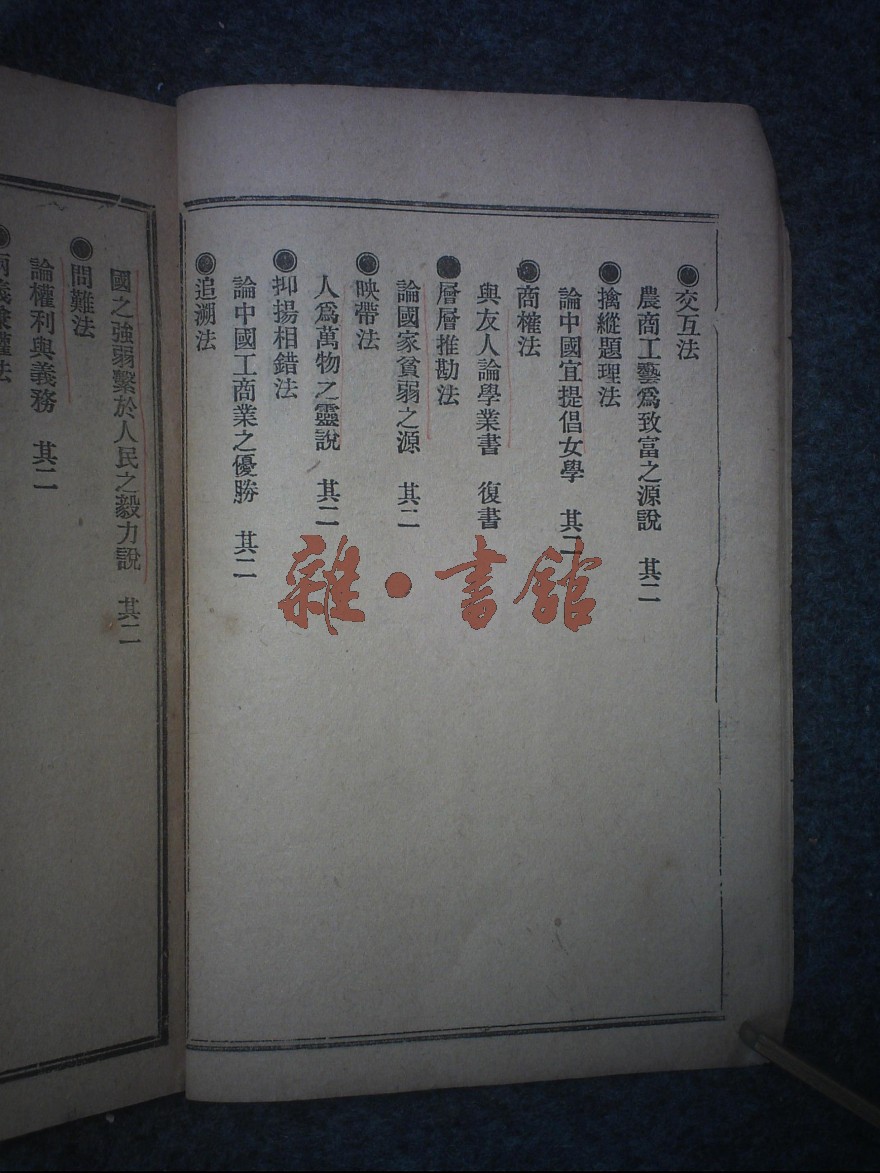 ●交互法
農商工藝爲致富之源說　其二
●擒縱題理法
論中國宜提倡女學　其二
●商榷法
與友人論學業書　復書
●層層推勘法
論國家貧弱之源　其二
●映帶法
人爲萬物之靈說　其二
●抑揚相錯法
論中國工商業之優勝　其二
●追溯法
國之強弱繫於人民之毅力說　其二
●問難法
論權利與義務　其二
雜·書館